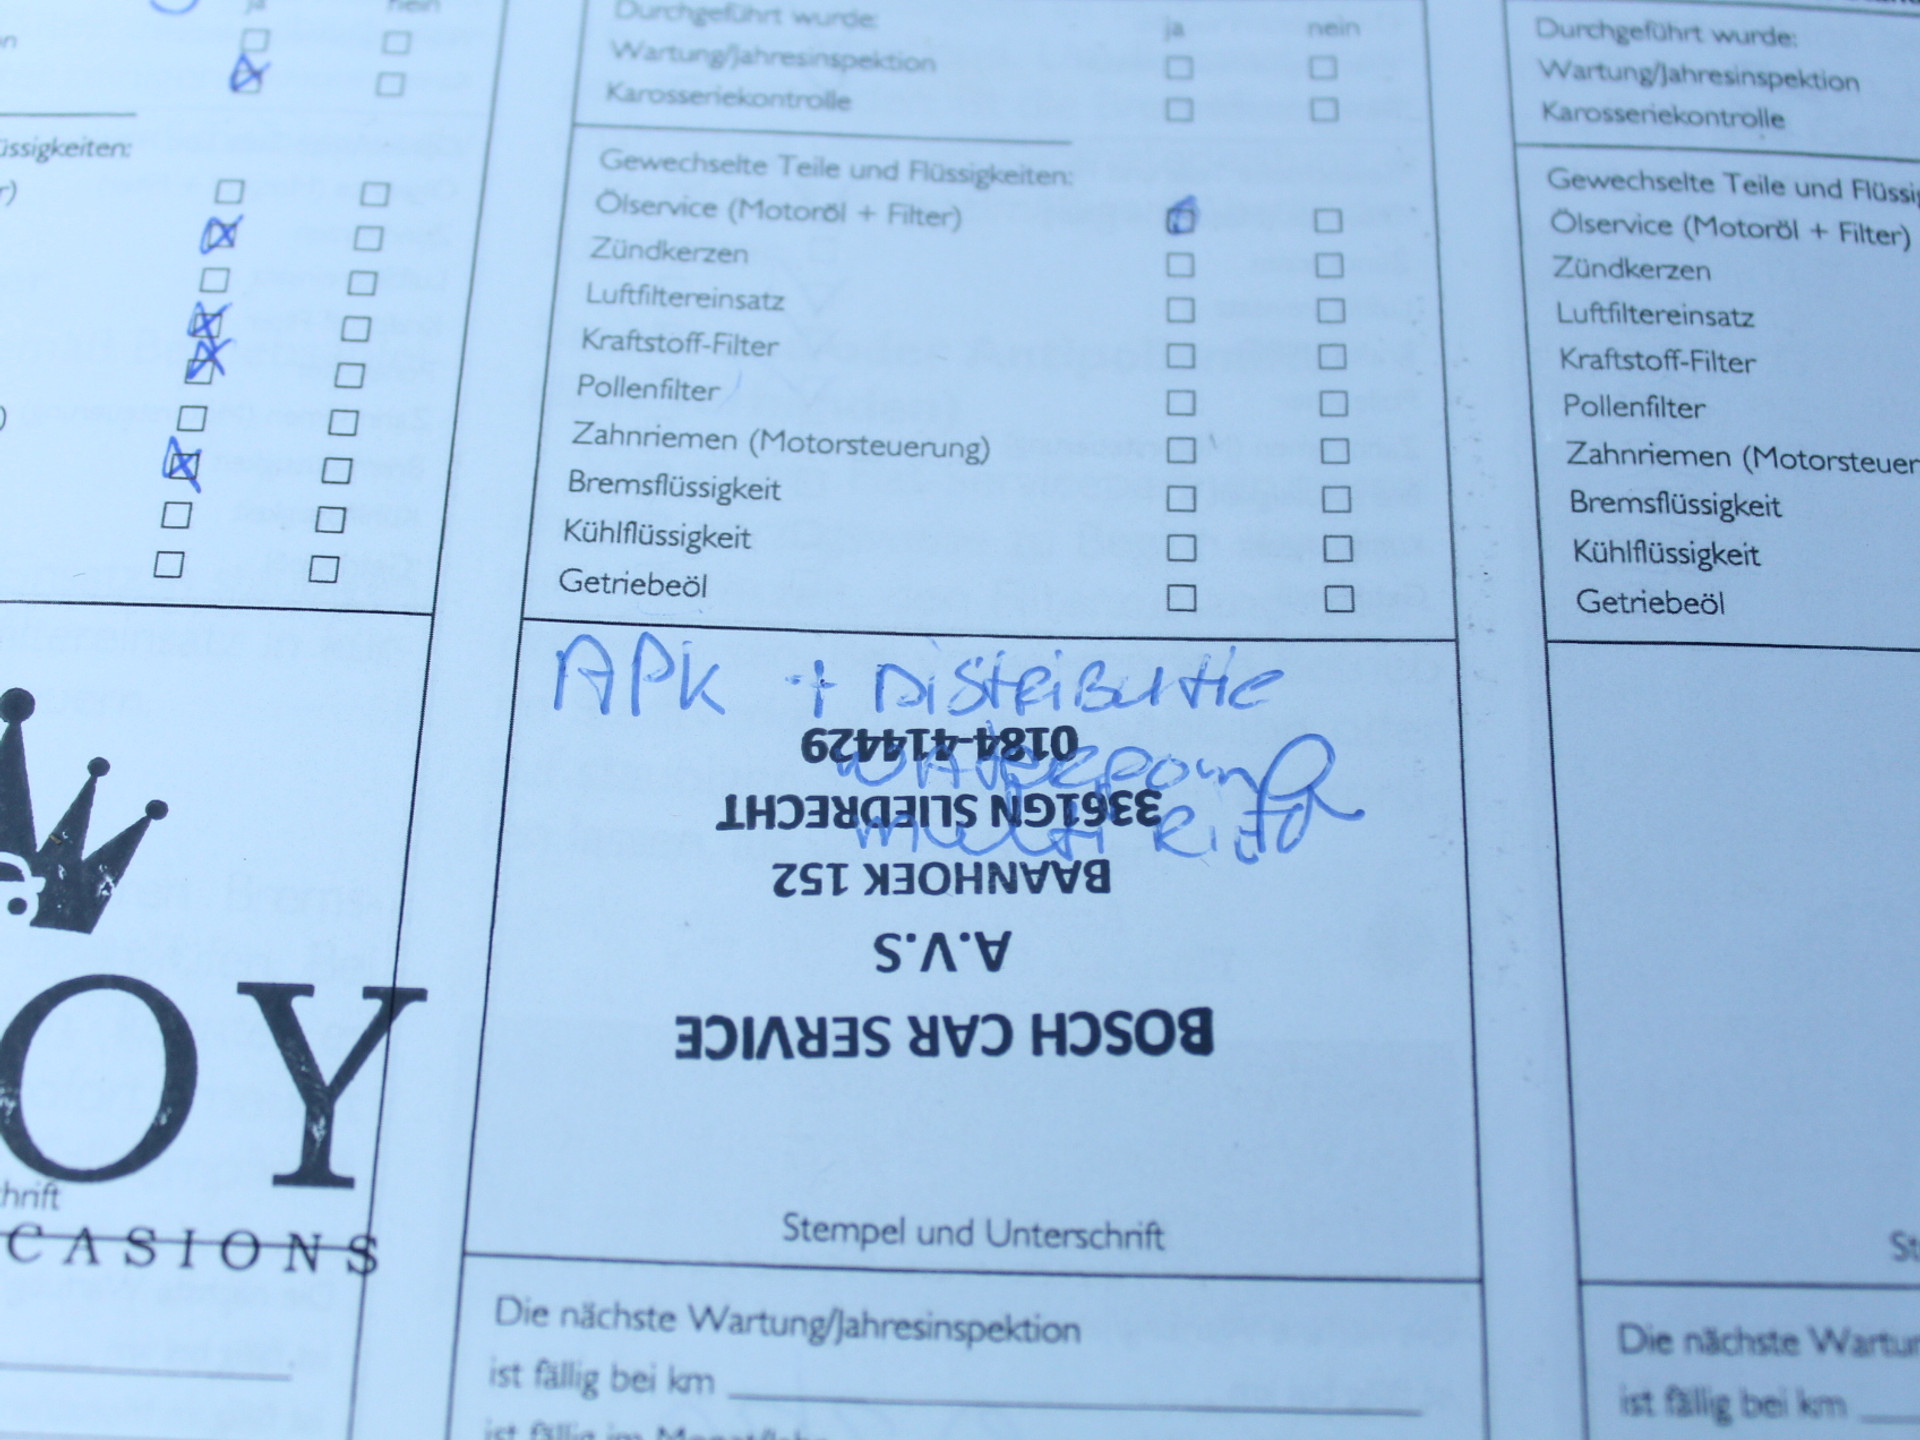 ja nein
üssigkeiten:
OY
hrift
CASIONS
Durchgeführt wurde: ja nein
Wartung/Jahresinspektion
Karosseriekontrolle
Gewechselte Teile und Flüssigkeiten:
Ölservice (Motoröl + Filter)
Zündkerzen
Luftfiltereinsatz
Kraftstoff-Filter
Pollenfilter
Zahnriemen (Motorsteuerung)
Bremsflüssigkeit
Kühlflüssigkeit
Getriebeöl
APK + Distributie
waterpomp
multi Riem
BOSCH CAR SERVICE
A.V.S
BAANHOEK 152
3361GN SLIEDRECHT
0184-414429
Stempel und Unterschrift
Die nächste Wartung/Jahresinspektion
ist fällig bei km
ist fällig im Monat/Jahr
Durchgeführt wurde:
Wartung/Jahresinspektion
Karosseriekontrolle
Gewechselte Teile und Flüssig
Ölservice (Motoröl + Filter)
Zündkerzen
Luftfiltereinsatz
Kraftstoff-Filter
Pollenfilter
Zahnriemen (Motorsteuer
Bremsflüssigkeit
Kühlflüssigkeit
Getriebeöl
St
Die nächste Wartu
ist fällig bei km